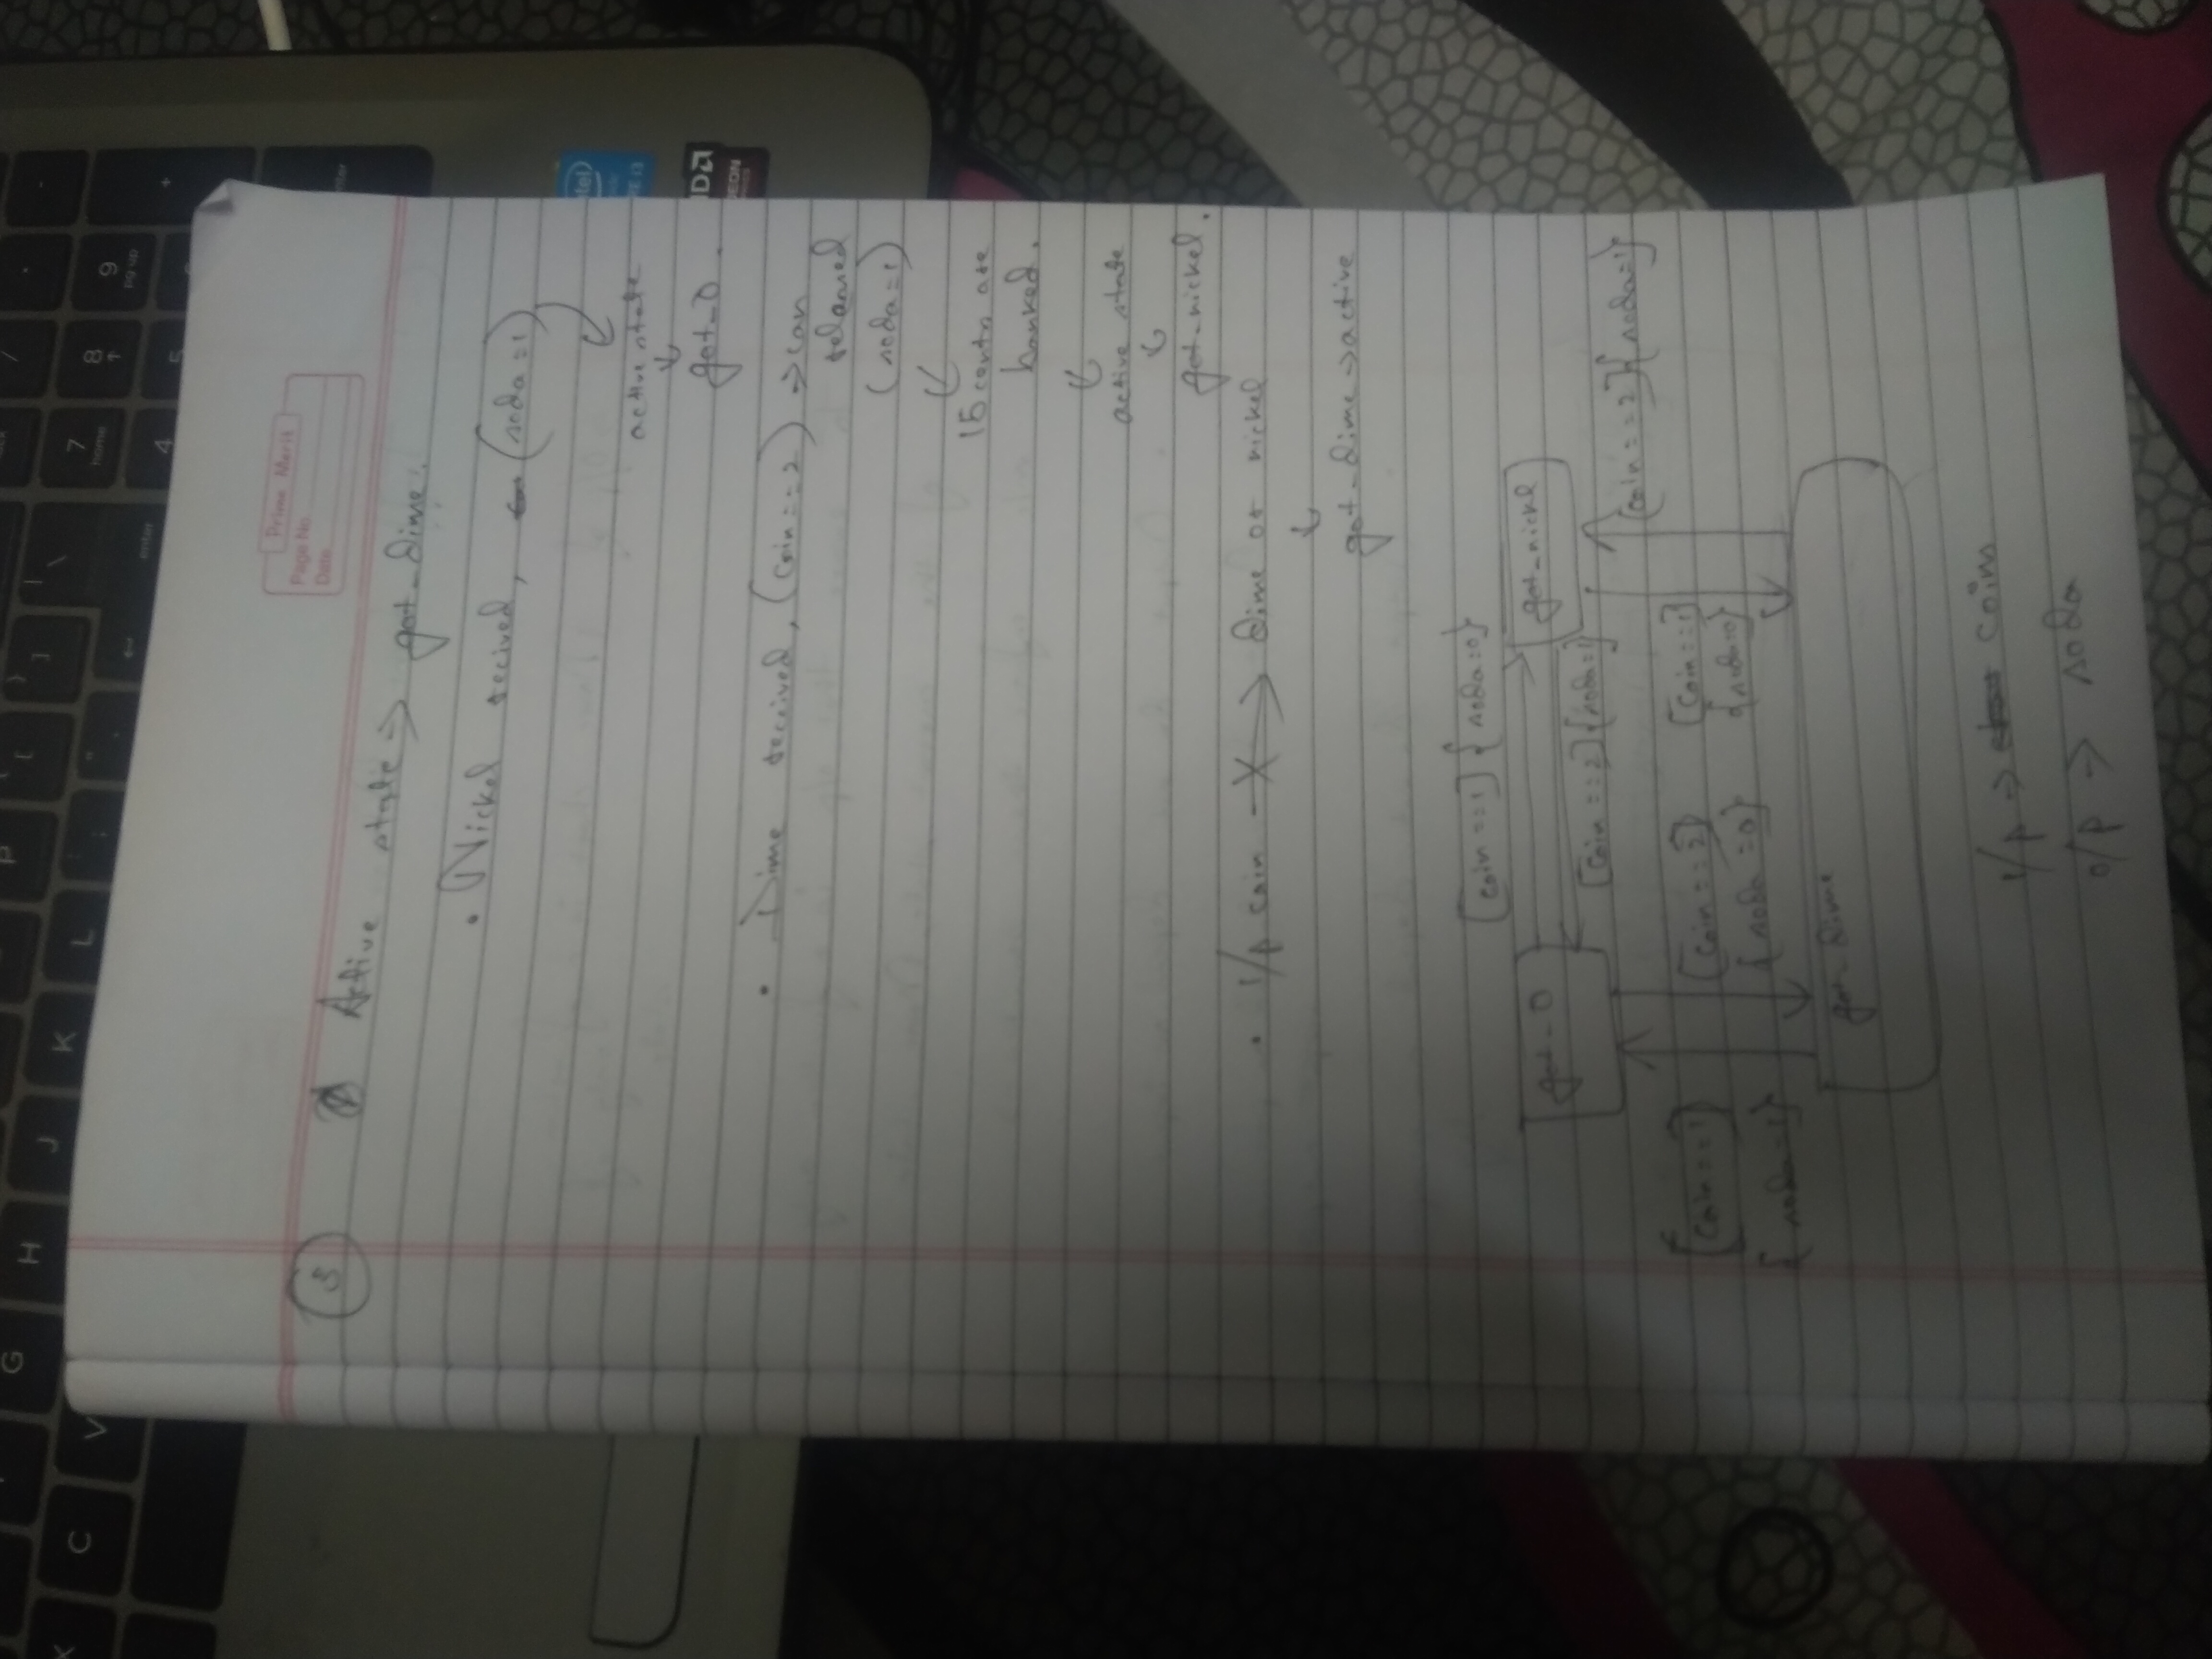 G H J K L P { [ } ] | \
X C V : ; " ' enter 7 home 8 9 pg up
4 5 +
Prime Merit
Page No
Date
3 Active state → got_dime.
• Nickel recived, (soda=1)
active state
↓
got_0.
• Dime received, (coin==2) → can
released
(soda=1)
15 cents are
banked.
active state
got_nickel.
• I/p coin → dime or nickel
↓
got_dime → active
[coin==1] {soda=0}
got_0 got_nickl
[coin==2]{soda=1}
[coin==2]{soda=1}
[coin==1] [coin==2] [coin==1]
{soda=1} {soda=0} {soda=0}
got_dime
I/p → coin
o/p → soda